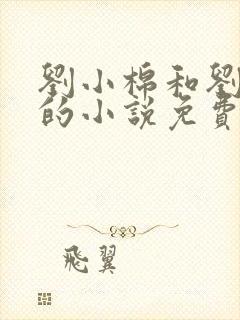 劉小棉和劉
的小說免費
飛翼